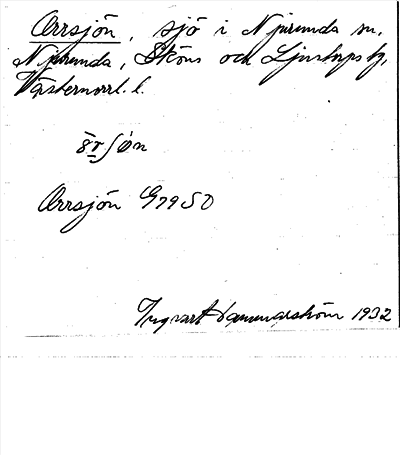 Orrsjön, sjö i Njurunda sn,
Njurunda, Sköns och Ljustorps tg,
Västernorrl. l.
òr̄ʃön
Orrsjön G79SO
Ingvart Hammarström 1932